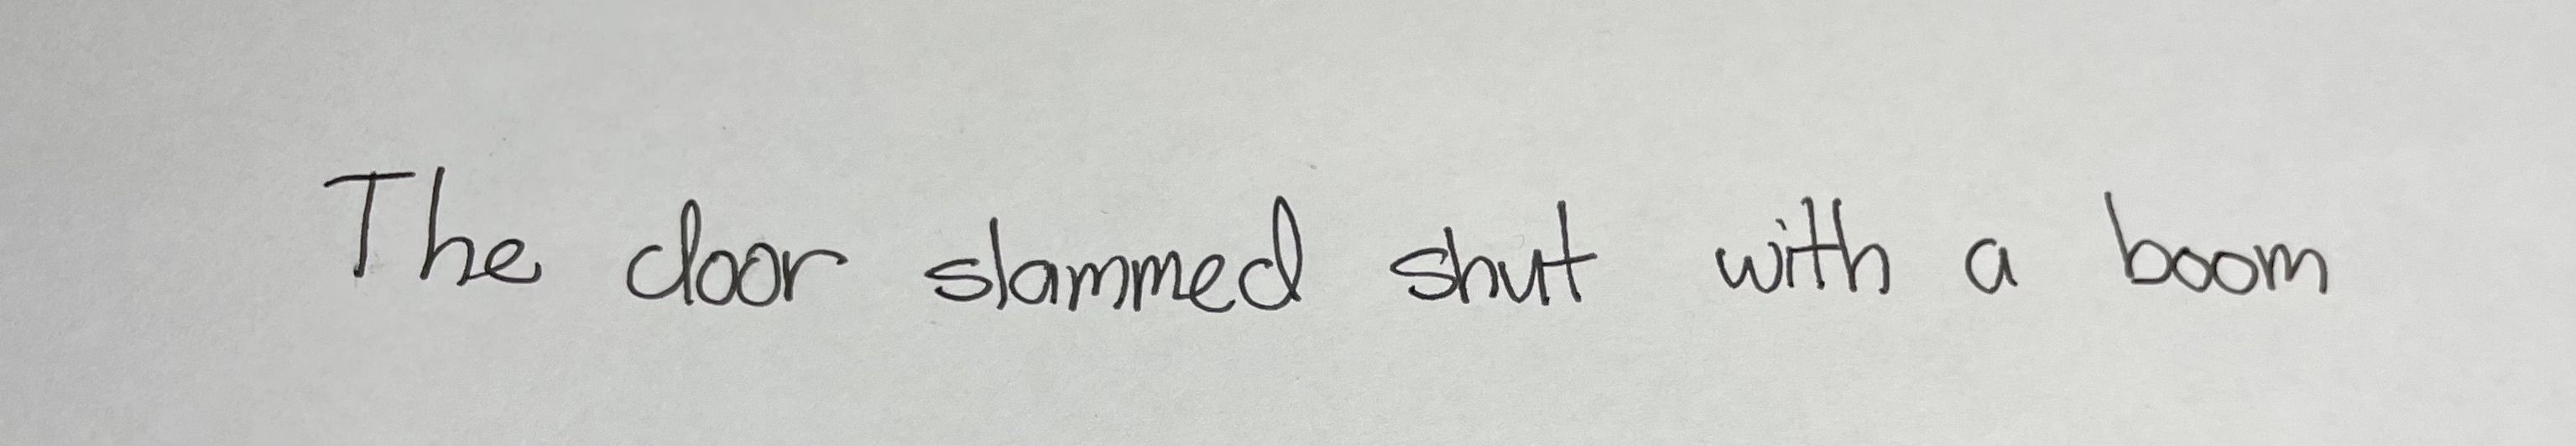 The door slammed shut with a boom